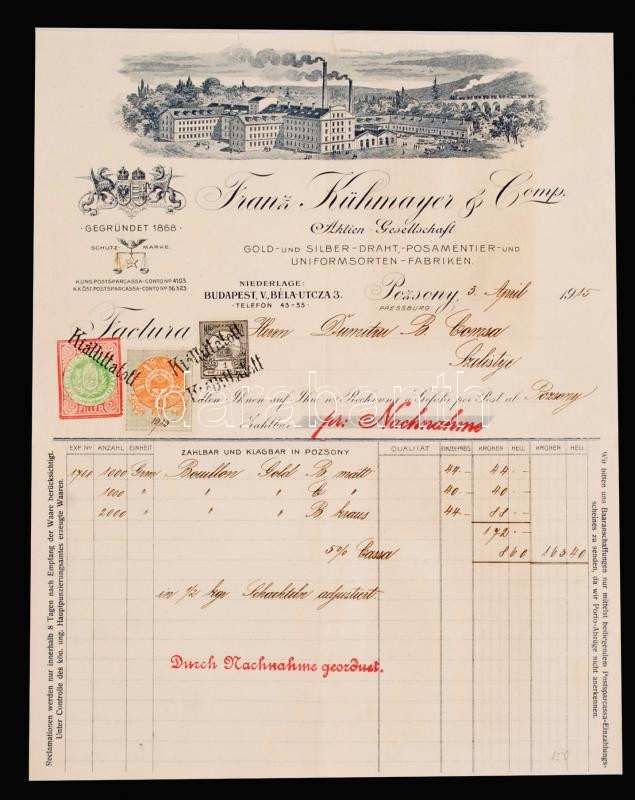 Franz Kühmayer & Comp.
Aktien-Gesellschaft
GEGRÜNDET 1868
SCHUTZ MARKE.
GOLD-UND SILBER-DRAHT,-POSAMENTIER-UND
UNIFORMSORTEN-FABRIKEN.
K.UNG. POSTSPARCASSA-CONTO Nº 4103.
K.K.ÖST. POSTSPARCASSA-CONTO Nº 36.323.
NIEDERLAGE:
BUDAPEST, V., BÉLA-UTCZA 3.
TELEFON 43-55
Pozsony, 3. April 1915
PRESSBURG
Factura Herrn Dumitru B. Comsa
Szelistye
Kiállittatott
Kiállittatott
Kiállittatott
FILLER
1915
Ihnen Auf Ihre Rechnung u. Gefahr per Post ab Pozsony
Zahlbar per Nachnahme
darabanth
ZAHLBAR UND KLAGBAR IN POZSONY
EXP. Nº ANZAHL EINHEIT QUALITÄT EINZELPREIS KRONEN HELL. KRONEN HELL.
1000 Grm Bouillon Gold B matt 44.- 44.-
1000 " " " " 40.- 40.-
2000 " " " B kraus 44.- 88.-
172.-
5% Cassa 8 60 163 40
in 1/2 kgr Schachteln adjustiert.
Durch Nachnahme geordnet.
Reclamationen werden nur innerhalb 8 Tagen nach Empfang der Waare berücksichtigt.
Unter Controlle des kön. ung. Hauptpunzierungsamtes erzeugte Waaren.
Wir bitten uns Baaranschaffungen nur mittelst beiliegendem Postsparcassa-Einzahlungs-
scheines zu senden, da wir Porto-Abzüge nicht anerkennen.
150